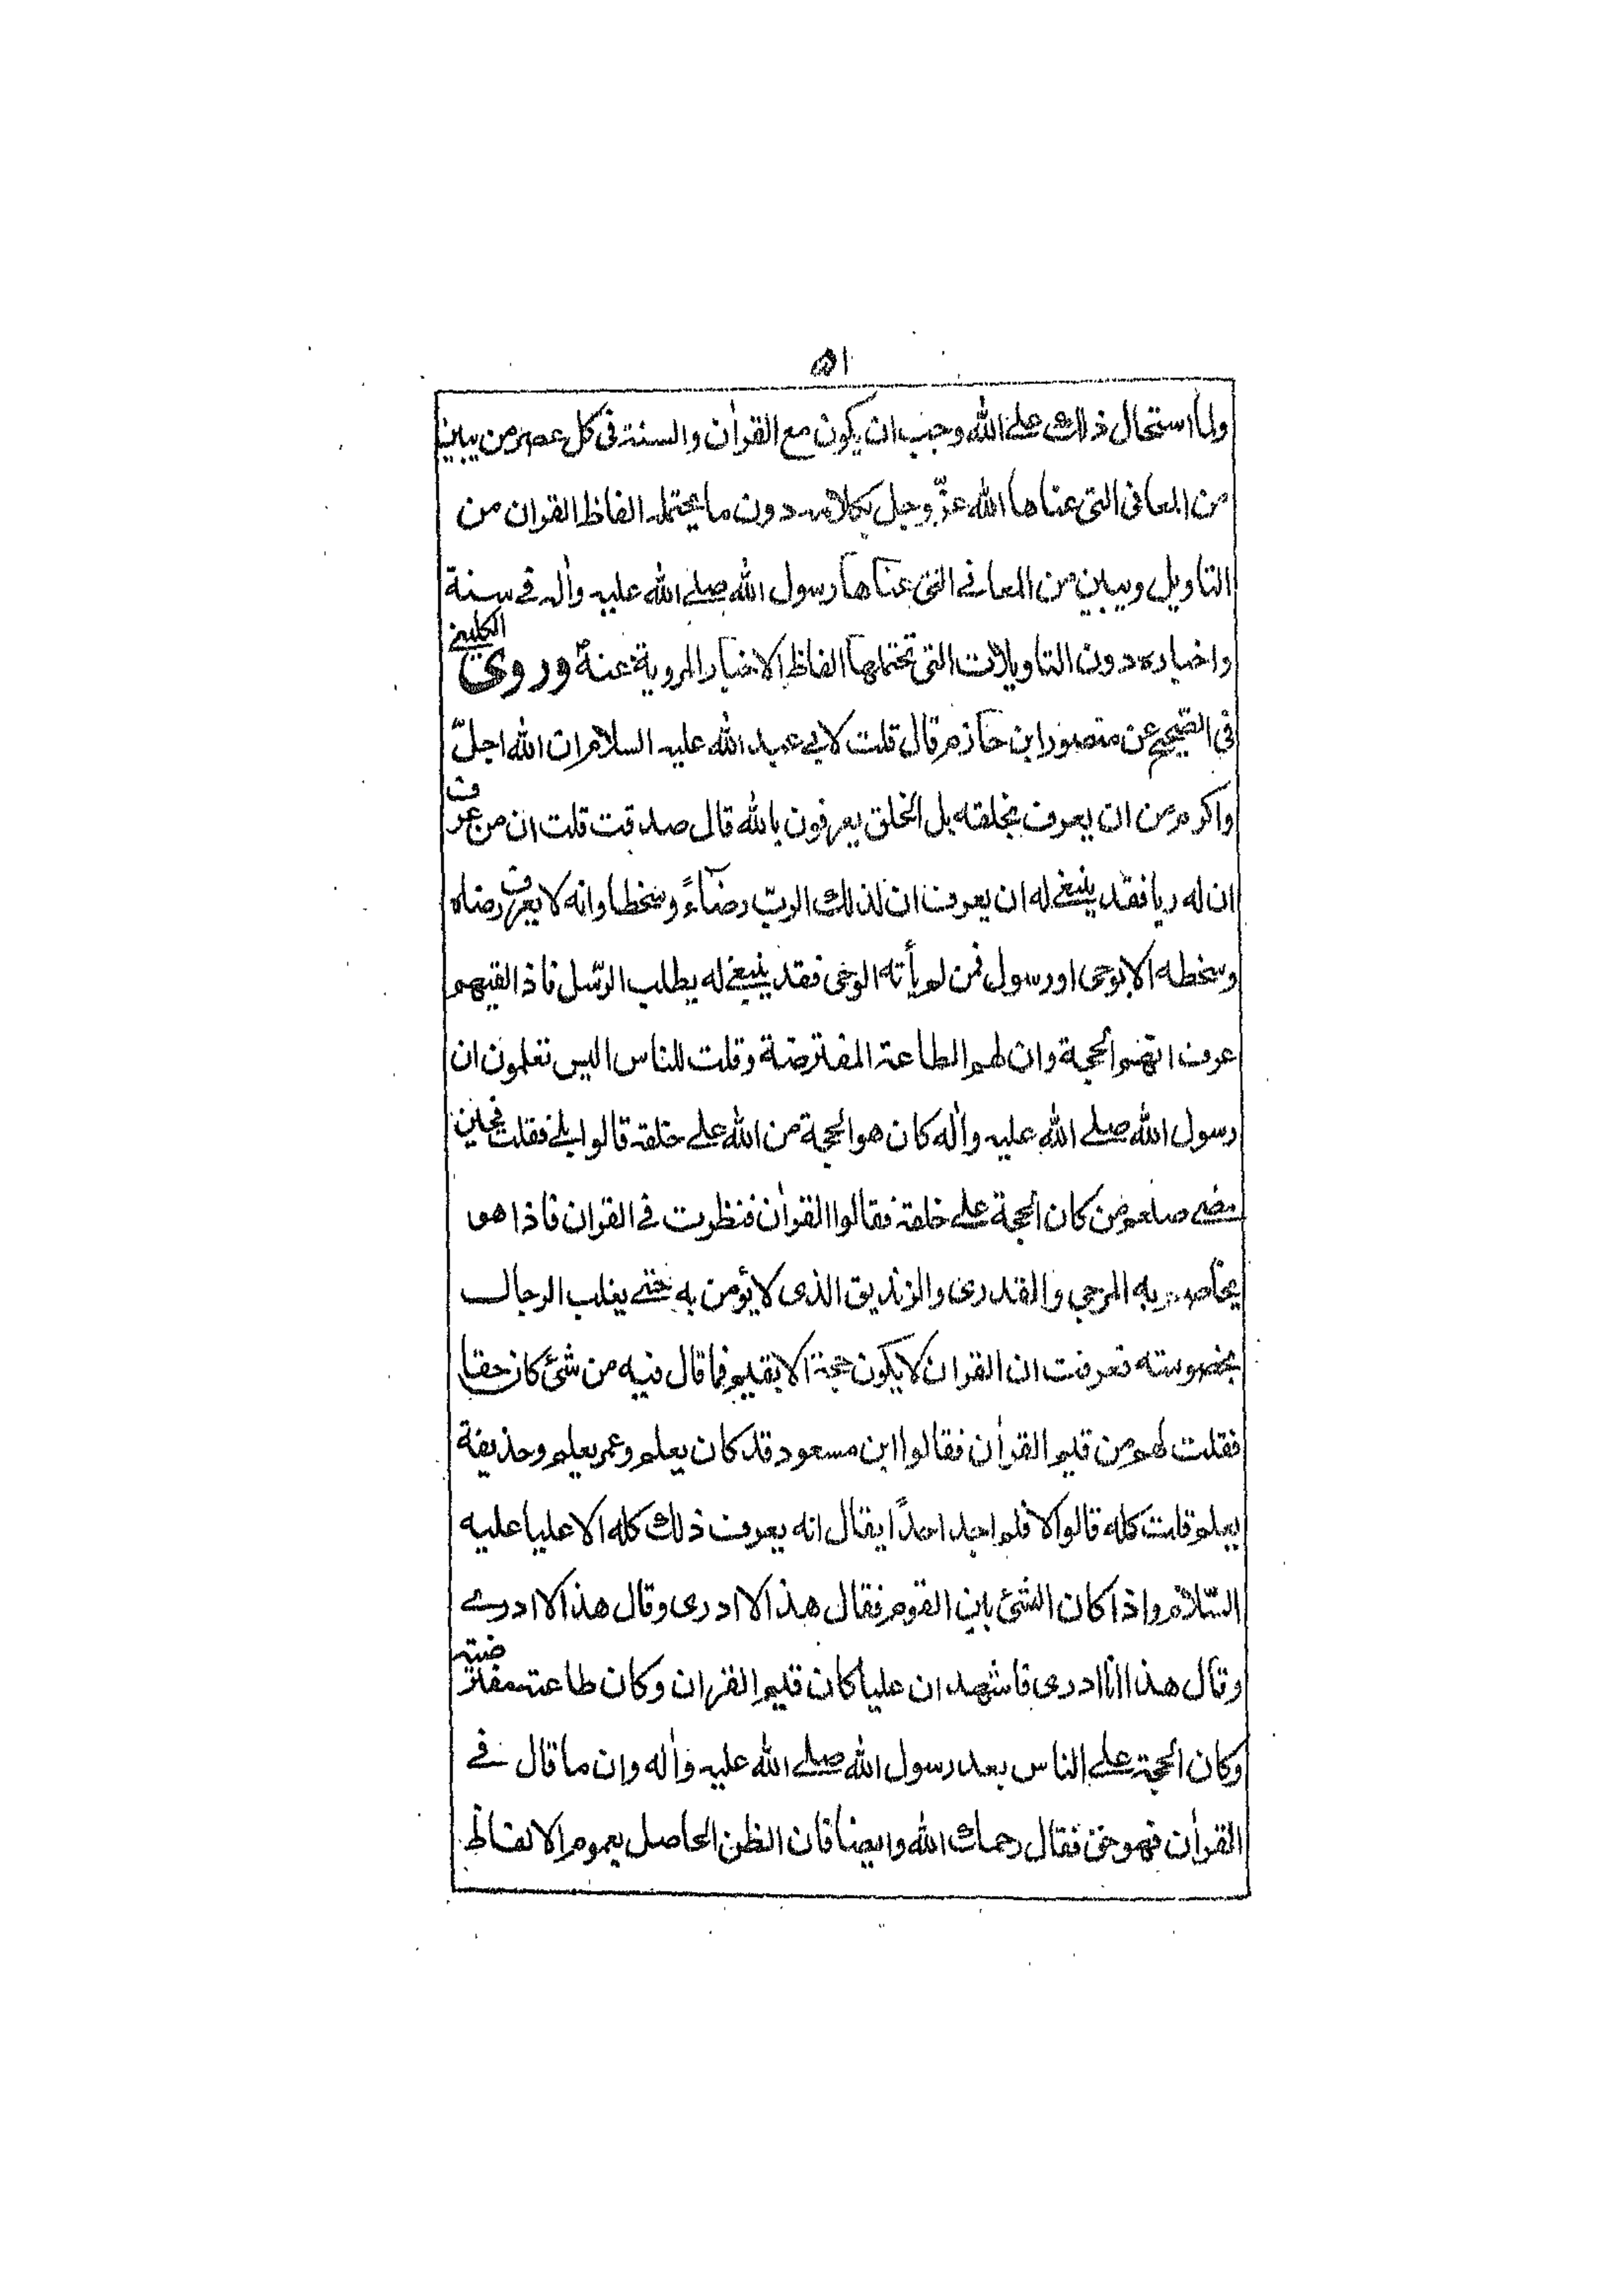 ۵۱
ولما استحال ذلك على الله وجب ان يكون مع القرآن والسنة فى كل عصر من يبين
من المعانى التى عناها الله عزّ وجل بكلامه دون ما يحتمله الفاظ القران من
التاويل ويبين من المعانے التى عناها رسول الله صلے الله عليه وآله فے سنة
واخباره دون التاويلات التى تحتملها الفاظ الاخبار المروية عنه وروى الكلينے
فى الصّحيح عن منصور ابن حازم قال قلت لابے عبد الله عليه السلام ان الله اجلّ
واكرم من ان يعرف بخلقه بل الخلق يعرفون بالله قال صدقت قلت ان من عرف
ان له ربا فقد ينبغے له ان يعرف ان لذلك الربّ رضاءً وسخطا وانه لا يعرف رضاه
وسخطه الا بوحى او رسول فمن لم يأته الوحى فقد ينبغے له يطلب الرّسل فاذا لقيهم
عرف انهم الحجة وان لهم الطاعة المفترضة وقلت للناس اليس تعلمون ان
رسول الله صلے الله عليه وآله كان هو الحجة من الله علے خلقه قالوا بلے فقلت فحين
مضے صلعم من كان الحجة علے خلقه فقالوا القرآن فنظرت فے القران فاذا هو
يخاصم به المرجى والقدرى والزنديق الذى لا يؤمن به حتے يغلب الرجال
بخصومته فعرفت ان القران لا يكون حجة الا بقيم فما قال فيه من شئ كان حقا
فقلت لهم من قيم القرآن فقالوا ابن مسعود قد كان يعلم وعمر يعلم وحذيفة
يعلم قلت كله قالوا لا فلم اجد احدًا يقال انه يعرف ذلك كله الا عليا عليه
السّلام واذا كان الشئ بين القوم فقال هذا لا ادرى وقال هذا لا ادرے
وقال هذا انا ادرى فاشهد ان عليا كان قيم القران وكان طاعته مفترضة
وكان الحجة علے الناس بعد رسول الله صلے الله عليه وآله وان ما قال فے
القرآن فهو حق فقال رحمك الله وايضا فان الظن الحاصل بعموم الالفاظ